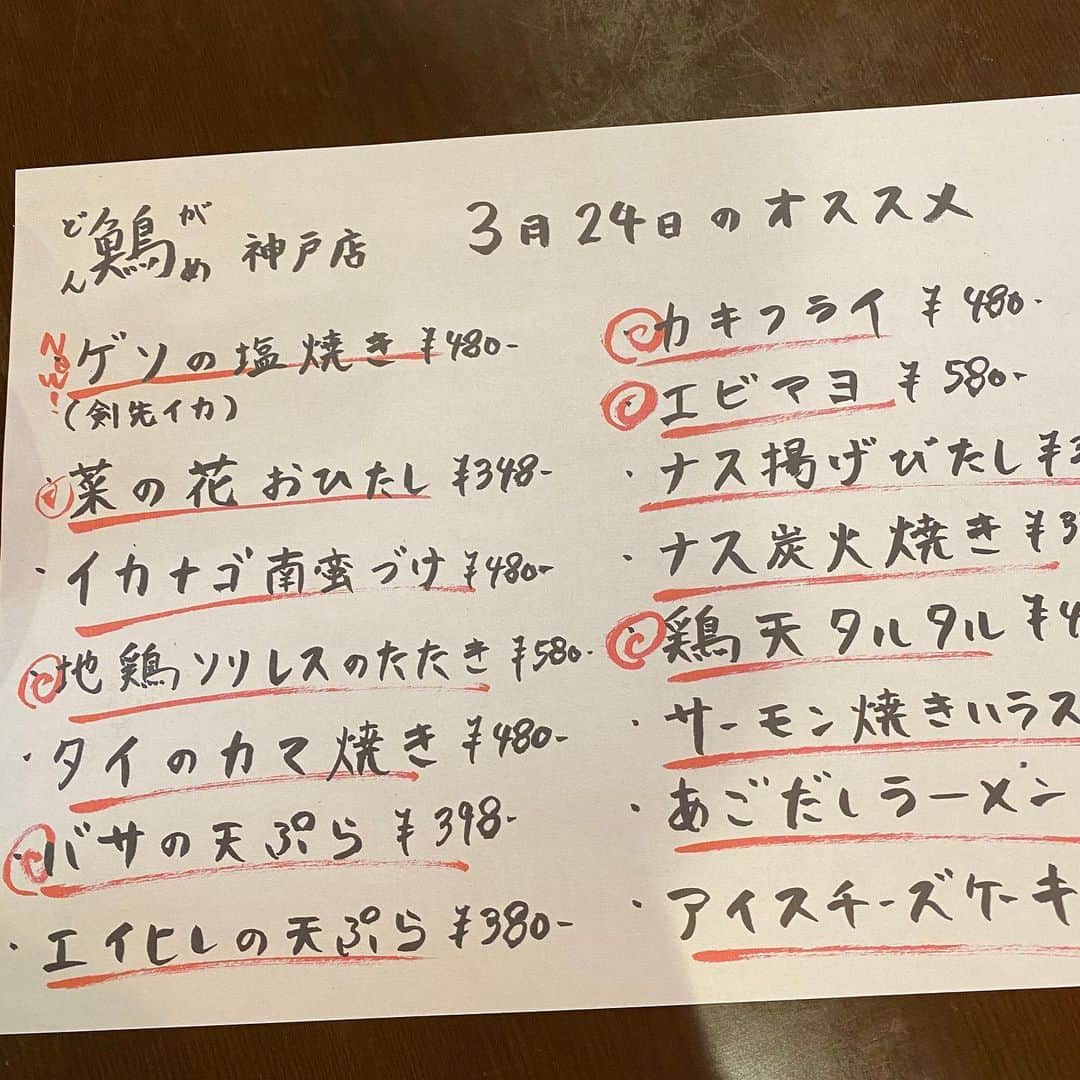 どん鷄がめ 神戸店
3月24日のオススメ
New! ゲソの塩焼き ¥480-
(剣先イカ)
菜の花おひたし ¥348-
・イカナゴ南蛮づけ ¥480-
・地鶏ソリレスのたたき ¥580-
・タイのカマ焼き ¥480-
・バサの天ぷら ¥398-
・エイヒレの天ぷら ¥380-
・カキフライ ¥480-
・エビマヨ ¥580-
・ナス揚げびたし ¥3
・ナス炭火焼き ¥3
・鶏天タルタル ¥4
・サーモン焼きハラス
・あごだしラーメン
・アイスチーズケーキ